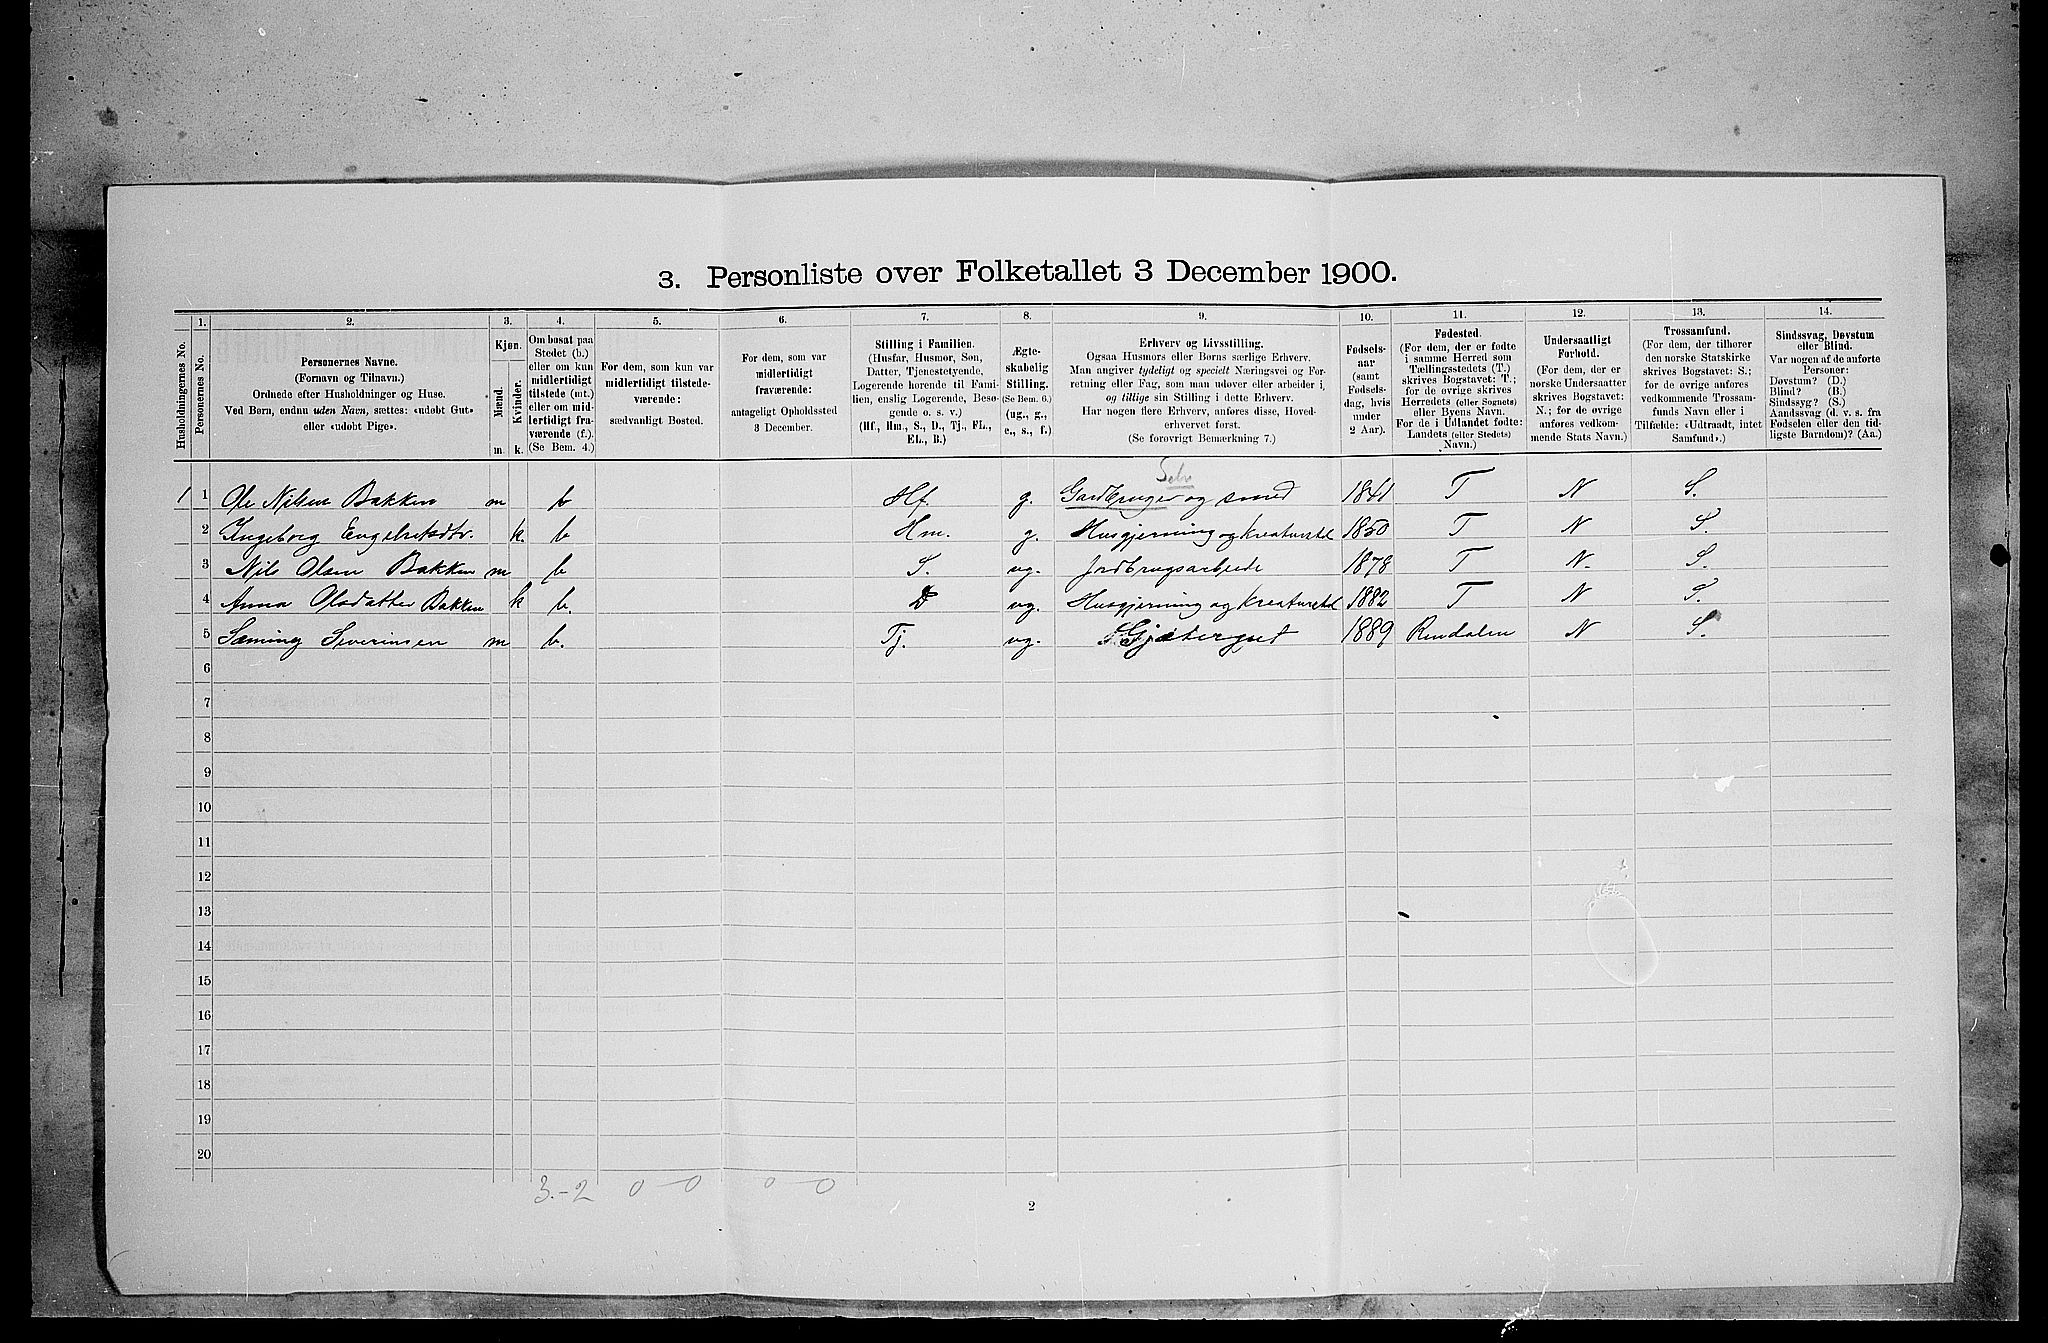 3. Personliste over Folketallet 3 December 1900.
1. 2. 3. 4. 5. 6. 7. 8. 9. 10. 11. 12. 13. 14.
Husholdningernes No.
Personernes No.
Personernes Navne.
(Fornavn og Tilnavn.)
Ordnede efter Husholdninger og Huse.
Ved Børn, endnu uden Navn, sættes: «udøbt Gut»
eller «udøbt Pige».
Kjøn.
Mænd.
Kvinder.
m. k.
Om bosat paa
Stedet (b.)
eller om kun
midlertidigt
tilstede (mt.)
eller om mid-
lertidigt fra-
værende (f.).
(Se Bem. 4.)
For dem, som kun var
midlertidigt tilstede-
værende:
sædvanligt Bosted.
For dem, som var
midlertidigt
fraværende:
antageligt Opholdssted
3 December.
Stilling i Familien.
(Husfar, Husmor, Søn,
Datter, Tjenestetyende,
Logerende hørende til Fami-
lien, enslig Logerende, Besø-
gende o. s. v.)
(Hf., Hm., S., D., Tj., FL.,
EL., B.)
Ægte-
skabelig
Stilling.
(Se Bem. 6.)
(ug., g.,
e., s., f.)
Erhverv og Livsstilling.
Ogsaa Husmors eller Børns særlige Erhverv.
Man angiver tydeligt og specielt Næringsvei og For-
retning eller Fag, som man udøver eller arbeider i,
og tillige sin Stilling i dette Erhverv.
Har nogen flere Erhverv, anføres disse, Hoved-
erhvervet først.
(Se forøvrigt Bemerkning 7.)
Fødsels-
aar
(samt
Fødsels-
dag, hvis
under
2 Aar).
Fødested.
(For dem, der er fødte
i samme Herred som
Tællingsstedets (T.)
skrives Bogstavet: T.;
for de øvrige skrives
Herredets (eller Sognets)
eller Byens Navn.
For de i Udlandet fødte:
Landets (eller Stedets)
Navn.)
Undersaatligt
Forhold.
(For dem, der er
norske Undersaatter
skrives Bogstavet:
N.; for de øvrige
anføres vedkom-
mende Stats Navn.)
Trossamfund.
(For dem, der tilhører
den norske Statskirke
skrives Bogstavet: S.;
for de øvrige anføres
vedkommende Trossam-
funds Navn eller i
Tilfælde: «Udtraadt, intet
Samfund».)
Sindssvag, Døvstum
eller Blind.
Var nogen af de anførte
Personer:
Døvstum? (D.)
Blind? (B.)
Sindssyg? (S.)
Aandssvag (d. v. s. fra
Fødselen eller den tid-
ligste Barndom)? (Aa.)
Selv
1 1 Ole Nilsen Bakken m b Hf. g. Gardbruger og smed 1841 T N S.
2 Ingeborg Engebretsdtr. k. b Hm. g. Husgjerning og Kreaturstel 1850 T N S.
3 Nils Olsen Bakken m b S. ug. Jordbrugsarbeide 1878 T N. S.
4 Anna Olsdatter Bakken k b. D ug. Husgjerning og Kreaturstel 1882 T N S.
5 Sæming Severinsen m b. Tj. ug. Gjætergut 1889 Rendalen N S.
6
7
8
9
10
11
12
13
14
15
16
17
18
19
20
3.-2 0-0 0-0
2